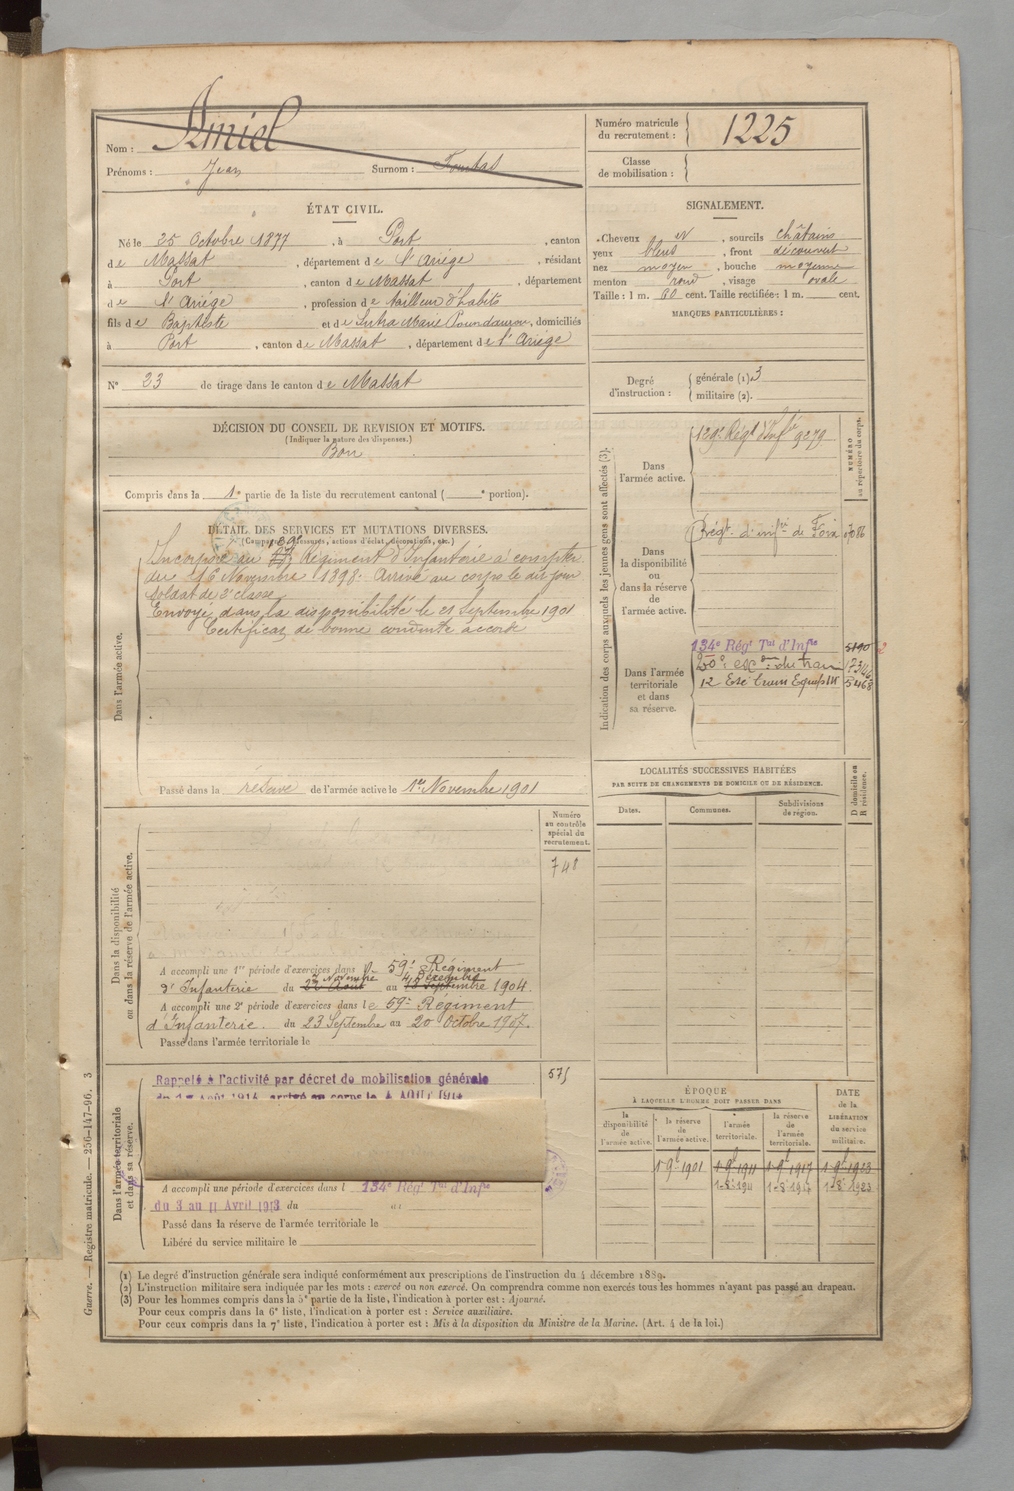 Nom : Amiel
Prénoms : Jean Surnom :
Numéro matricule du recrutement : 1225
Classe de mobilisation :
ÉTAT CIVIL.
Né le 25 Octobre 1877, à Port, canton
de Massat, département de l'Ariège, résidant
à Port, canton de Massat, département
de l'Ariège, profession de tailleur d'habits
fils de Baptiste et de Marie, domiciliés
à Port, canton de Massat, département de l'Ariège
N° 23 de tirage dans le canton de Massat
DÉCISION DU CONSEIL DE REVISION ET MOTIFS.
(Indiquer la nature des dispenses.)
Bon
Compris dans la 1e partie de la liste du recrutement cantonal ( e portion).
SIGNALEMENT.
Cheveux N, sourcils châtains
yeux bleus, front découvert
nez moyen, bouche moyenne
menton rond, visage ovale
Taille : 1 m. 60 cent. Taille rectifiée : 1 m. cent.
MARQUES PARTICULIÈRES :
Degré d'instruction :
générale (1). 3
militaire (2).
DÉTAIL DES SERVICES ET MUTATIONS DIVERSES.
(Campagnes, blessures, actions d'éclat, décorations, etc.)
129e
Incorporé au Régiment d'Infanterie à compter
du 16 Novembre 1898. Arrivé au corps le dit jour
soldat de 2e classe
Envoyé dans la disponibilité le 21 Septembre 1901
Certificat de bonne conduite accordé
Dans l'armée active.
Passé dans la réserve de l'armée active le 1er Novembre 1901
Indication des corps auxquels les jeunes gens sont affectés (3).
NUMÉRO au répertoire du corps.
Dans l'armée active.
129e Régt d'Infie 9279
Dans la disponibilité ou dans la réserve de l'armée active.
Régt d'infie de Foix 7086
Dans l'armée territoriale et dans sa réserve.
134e Régt Tal d'Infie 5190
20e escon du train
12 Esc train Equip Mre
LOCALITÉS SUCCESSIVES HABITÉES
PAR SUITE DE CHANGEMENTS DE DOMICILE OU DE RÉSIDENCE.
Dates. Communes. Subdivisions de région. D domicile ou R résidence.
Dans la disponibilité ou dans la réserve de l'armée active.
Numéro au contrôle spécial du recrutement.
741
A accompli une 1re période d'exercices dans le 59e Régiment
27 Novembre 4 Décembre
d'Infanterie du 22 Août au Septembre 1904.
A accompli une 2e période d'exercices dans le 59e Régiment
d'Infanterie. du 23 Septembre au 20 Octobre 1907.
Passé dans l'armée territoriale le
Dans l'armée territoriale et dans sa réserve.
575
Rappelé à l'activité par décret de mobilisation générale
du 1er Août 1914, arrivé au corps le 4 AOUT 1914
A accompli une période d'exercices dans l 134e Régt Tal d'Infie
du 3 au 11 Avril 1913 du au
Passé dans la réserve de l'armée territoriale le
Libéré du service militaire le
ÉPOQUE
À LAQUELLE L'HOMME DOIT PASSER DANS
la disponibilité de l'armée active. la réserve de l'armée active. l'armée territoriale. la réserve de l'armée territoriale.
DATE de la LIBÉRATION du service militaire.
1 9t 1901 1 9t 1911 1 9t 1917 1 9t 1923
1-8-1911 1-8-1917 1-8-1923
(1) Le degré d'instruction générale sera indiqué conformément aux prescriptions de l'instruction du 4 décembre 1889.
(2) L'instruction militaire sera indiquée par les mots : exercé ou non exercé. On comprendra comme non exercés tous les hommes n'ayant pas passé au drapeau.
(3) Pour les hommes compris dans la 5e partie de la liste, l'indication à porter est : Ajourné.
Pour ceux compris dans la 6e liste, l'indication à porter est : Service auxiliaire.
Pour ceux compris dans la 7e liste, l'indication à porter est : Mis à la disposition du Ministre de la Marine. (Art. 4 de la loi.)
Guerre. — Registre matricule. — 256-147-96. 3